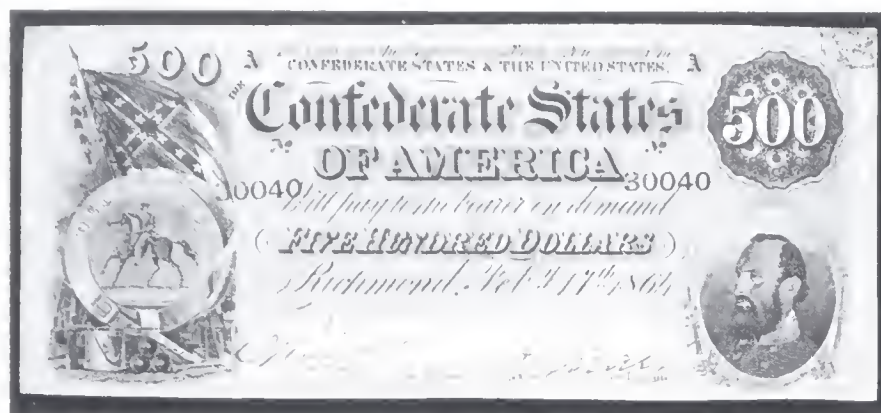 500
A A
CONFEDERATE STATES & THE UNITED STATES,
THE
Confederate States
OF AMERICA
500
30040 30040
Will pay to the bearer on demand
FIVE HUNDRED DOLLARS
Richmond, Feb.y 17th 1864